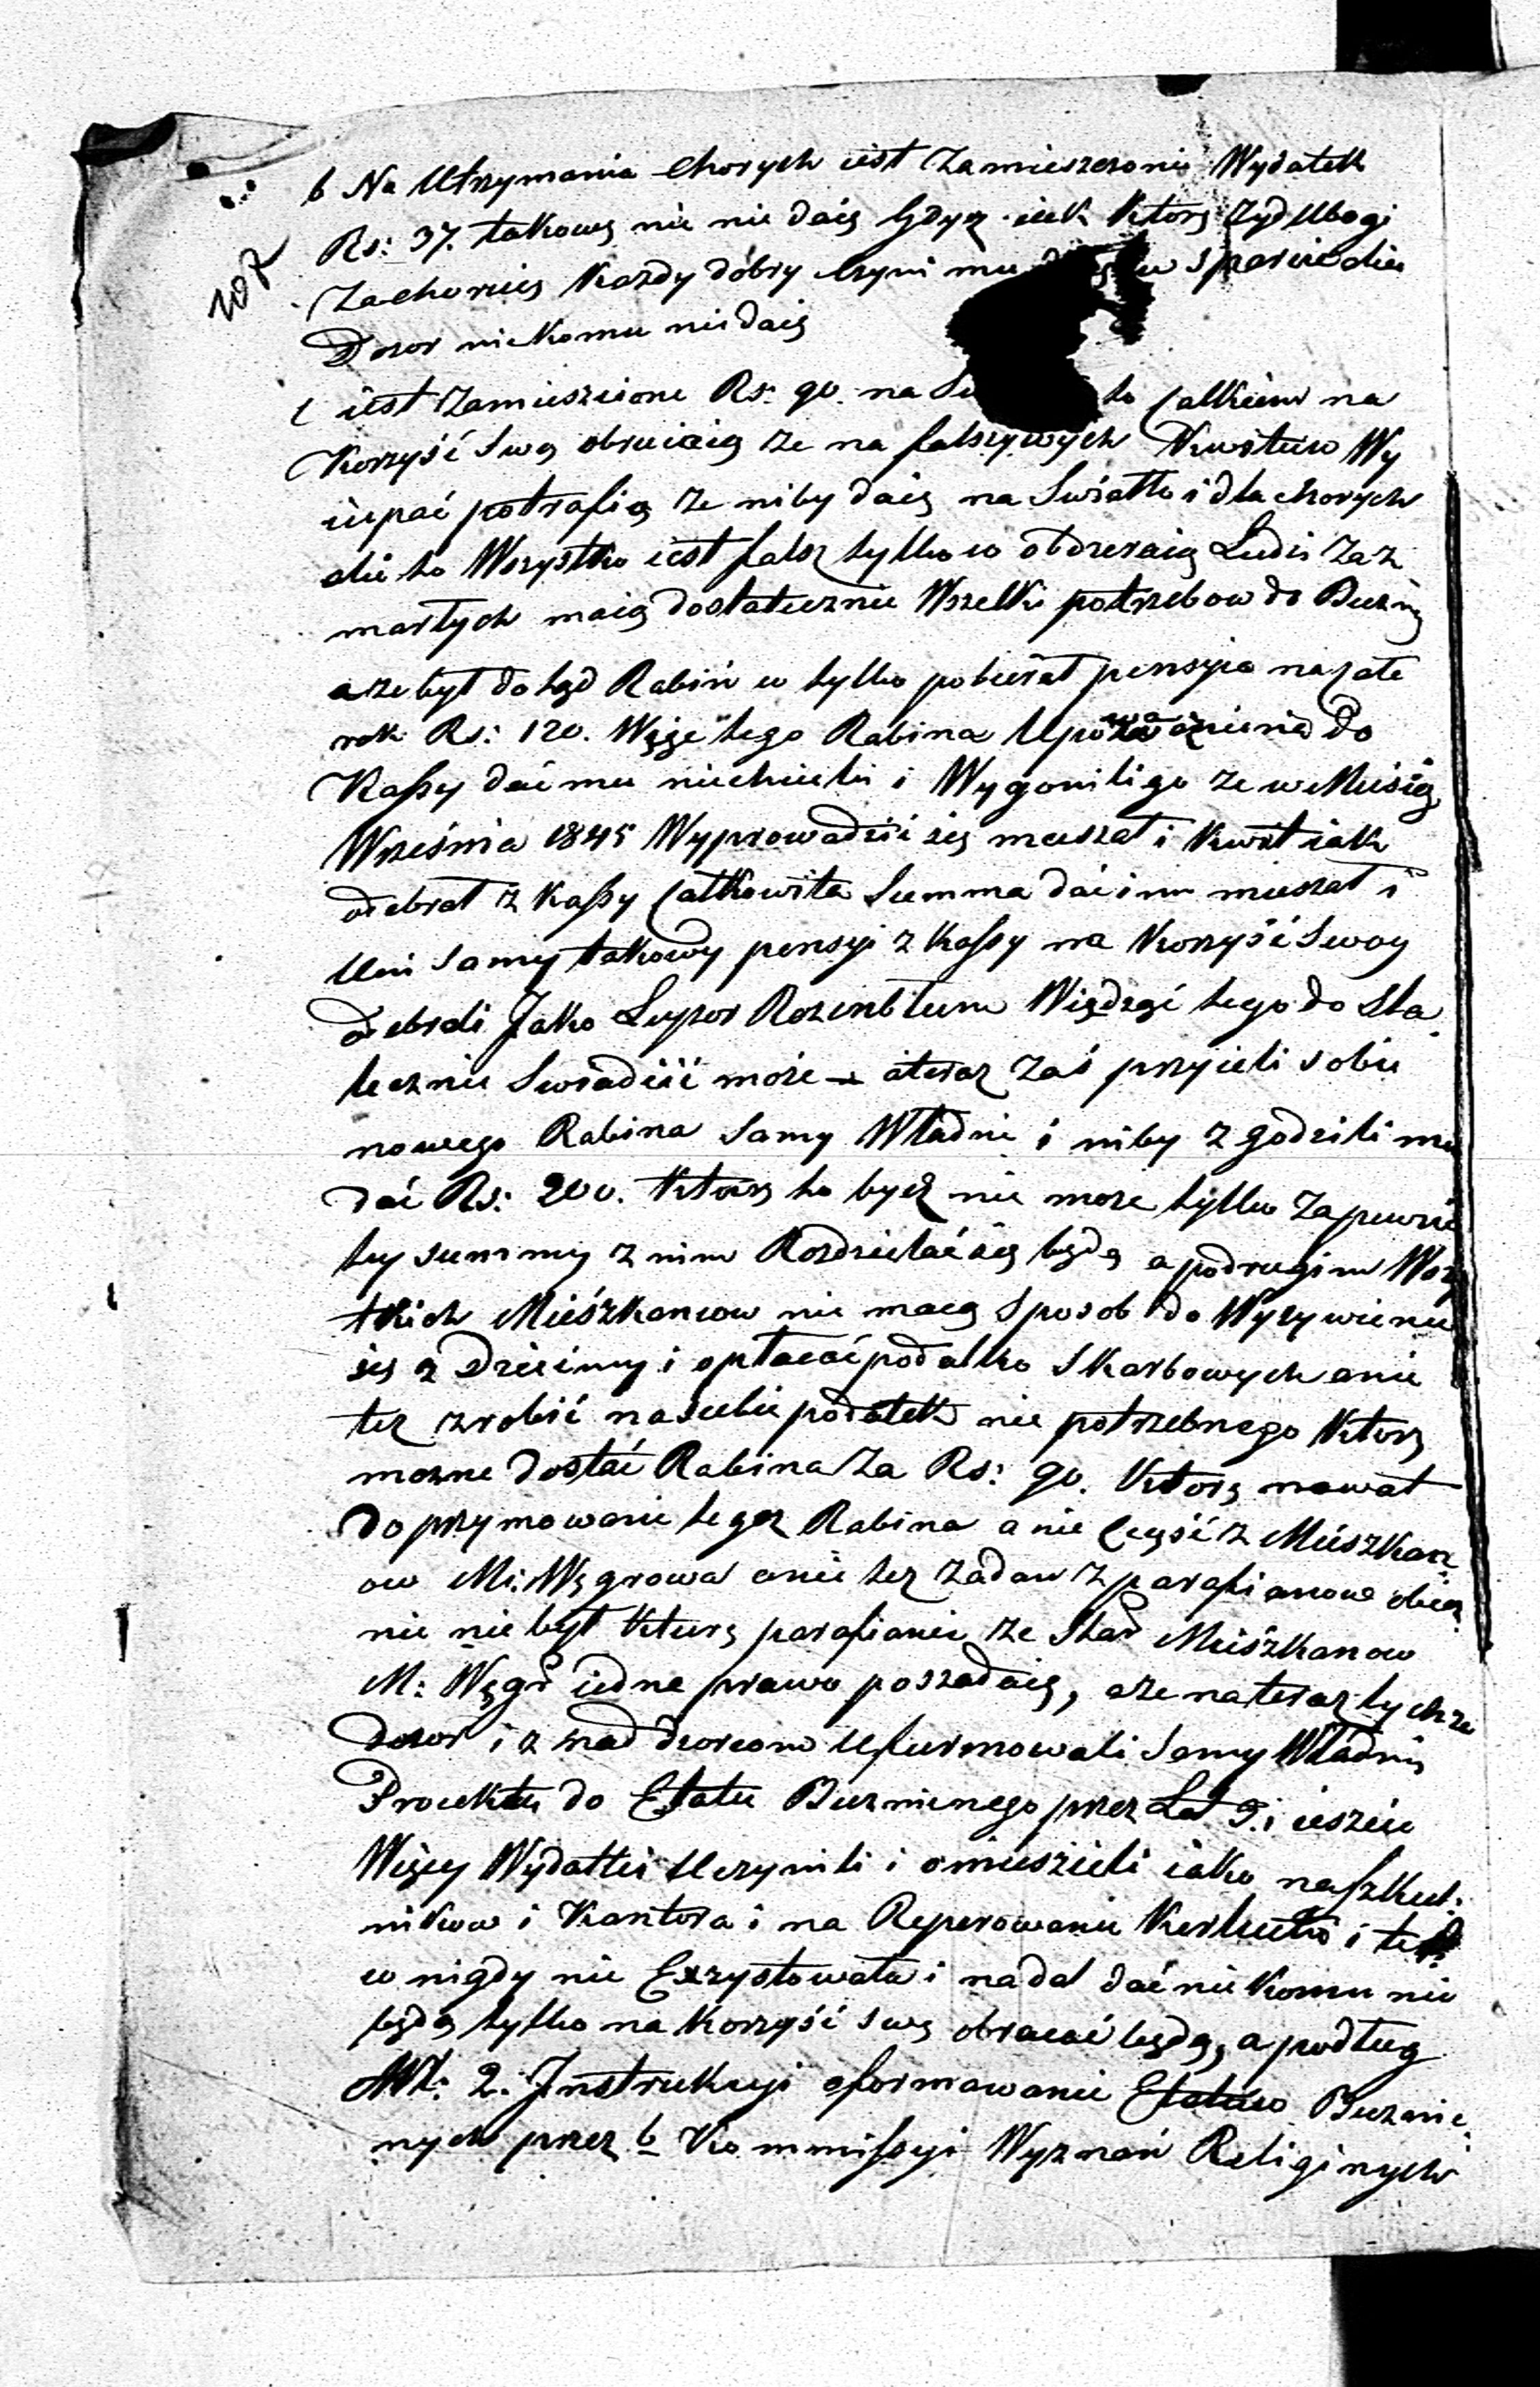 b Na Utrzymania Chorych iest Zamieszczonie Wydatek
Rs: 37. takowę nie nie daię Gdyz iek Ktorę Żyd Ubogi
207
Zachoruię Kazdy dobry czyni mu
Dozor nikomu nie daię
c iest Zamieszczone Rs: 90. na to całkiem na
Korzyść Swą obruicaią ze na falszywych Kwituw Wy
iepać potrafią ze niby daią na Swiatło i dla chorych
ale to Wszystko iest falsz tylko w obdzeraią Ludzi za z
martych maią dostatecznie Wszelki potrzebow do Buzni
a ze był do tąd Rabin w tylko pobierał pensyia na cały
rok Rs: 120. Więc tego Rabina Upoważnienia do
Kassy dać mu niechcieli i Wygonili go ze w Miesią
Września 1845 Wyprowadzić się muszał i Kwit iak
odebrał z Kassy całkowita Summa dać im muszał i
Uni samy takowy pensyi z Kassy na Korzyść Swoy
odebrali Jako Supzor Rozenblum Więdzęć tego do sta
tecznie Swiadcić może – a teraz zaś przyieli sobie
nowego Rabina samy Władnie i niby zgodzili mu
dać Rs: 200. Ktorę to bydź nie moze tylko zapewnie
ty summy z nim Rozdzielać się będą a podrugim Wszy
tkich Mieszkancow nie maią sposob do Wyzywienie
się z dziecimy i opłacać podatko Skarbowych anie
tez zrobić na siebie podatek nie potrzebnego Ktorę
mozne dostać Rabina za Rs: 90. Ktorę nawat
do przymowanie tegoz Rabina a nie część z Mieszkan
ow M: Węgrowa anie tez zadan z parafianow obie
nie nie był Kturę parafianie ze Stad Mieszkanow
M: Węgr iedne prawo poszadaię, a ze na teraz tychze
dozor i z nad dzorcom Ufurmowali samy Władnie
Proiektu do Etatu Buznicnego przez Lat 3. i ieszcie
Więcy Wydatki Uczynili i omieszcieli iako na szkul.
nikow i Kantora i na Reperowanie Kerkuta i
w nigdy nie Exzystowała i nadal dać nie Komu nie
będą tylko na Korzyść swę obracać będą, a podług
Art: 2. Instrukcyi oformowanie Etatuw Buznic
nych przez b Kommissyi Wyznań Religinych